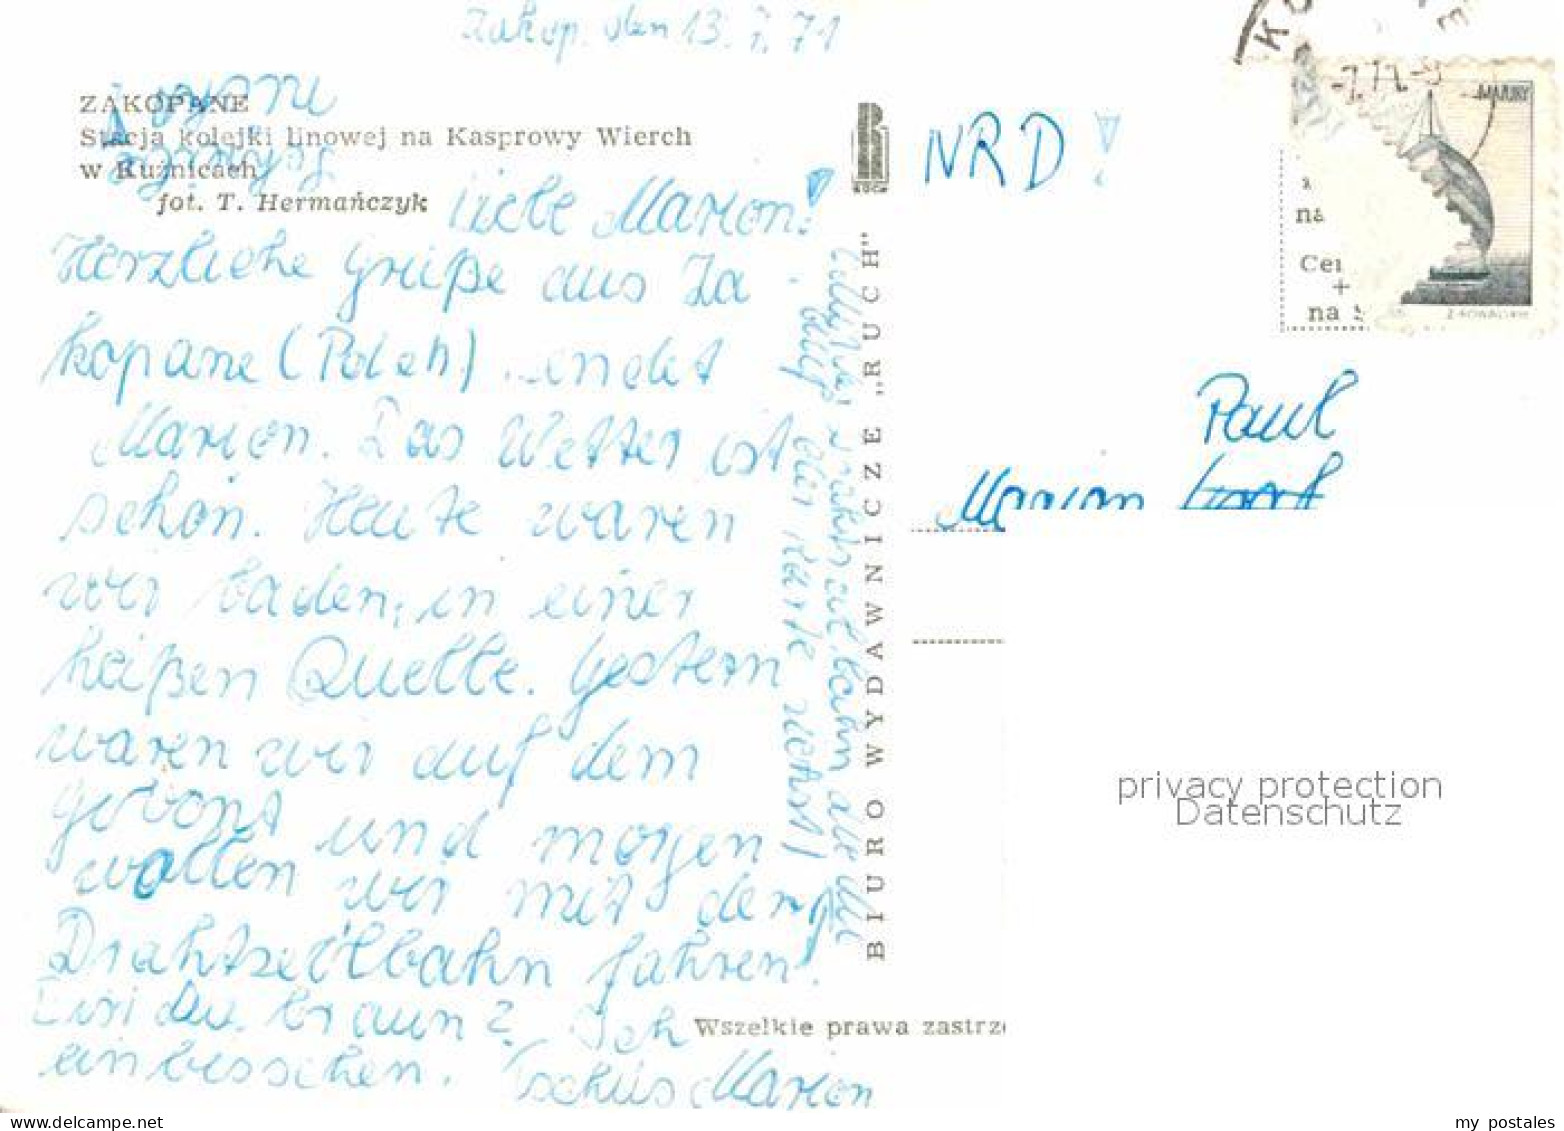 Zakop. den 13.7.71
ZAKOPANE
Stacja kolejki linowej na Kasprowy Wierch
w Kuźnicach
fot. T. Hermańczyk
Liebe Marion!
Herzliche Grüße aus Za-
kopane (Polen) sendet
Marion. Das Wetter ist
schön. Heute waren
wir baden, in einer
heißen Quelle. Gestern
waren wir auf dem
und morgen
wollen wir mit der
Drahtseilbahn fahren!
Bist Du braun? Ich
ein bisschen. Tschüs Marion
die Du auf
der Karte siehst!
BIURO WYDAWNICZE „RUCH”
RUCH
Wszelkie prawa zastrz
NRD!
K
E
-7.71.-
MAZURY
na
Cen
+
na S
Z. KOWALSKI
Paul
Marion
privacy protection
Datenschutz
my postales